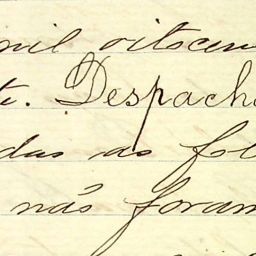 mil oitocen
te. Despacho
das as fol
não foram